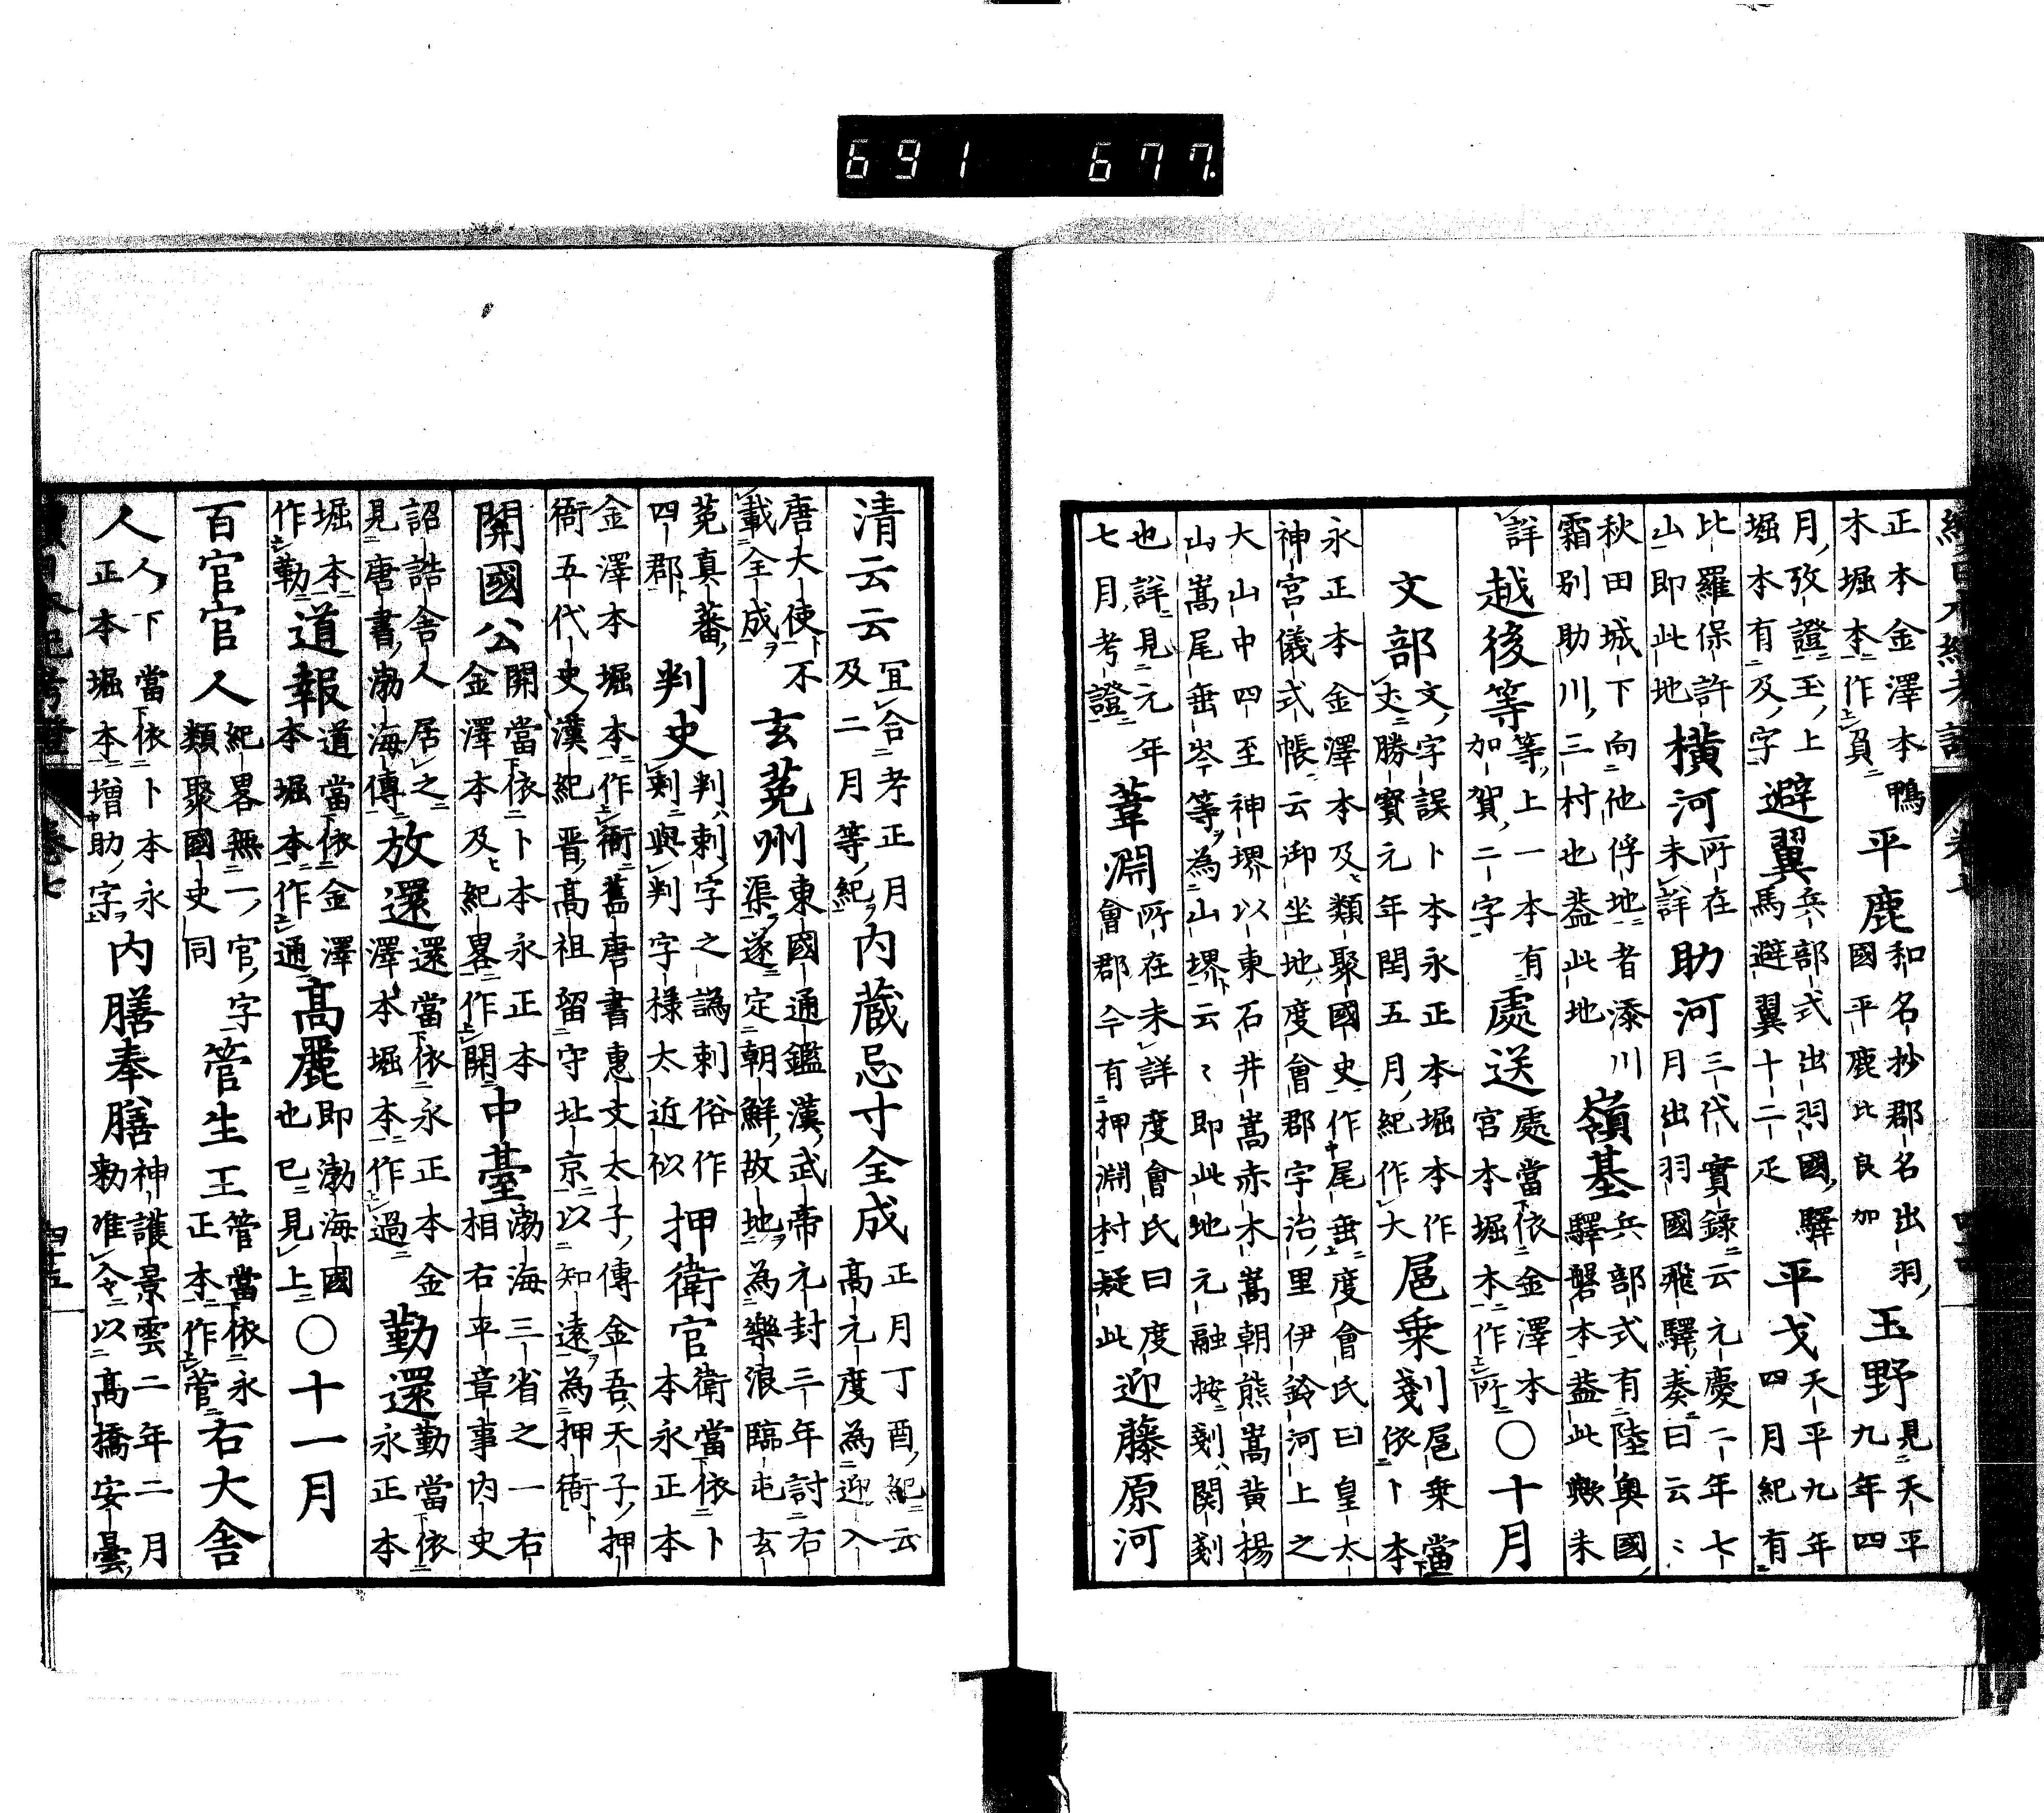 691 677.
正本金澤本鴨
木堀本作負
平鹿
和名抄郡名出羽
國平鹿比良加
玉野
見天平
九年四
月、攷證玉、上
堀本有及、字
避翼
兵部式出羽國、驛
馬避翼十二疋
平戈
天平九年
四月紀有
比羅保許
山即此地
横河
所在
未詳
助河
三代實錄云元慶二年七
月出羽國飛驛、奏曰云〻
秋田城下向化俘地者添川
霜別助川、三村也葢此地
嶺基
兵部式有陸奧國、
驛磐本葢此歟未
詳
越後等
等、上一本有
加賀、二字
處送
處當依金澤本
官本堀本作所
〇十月
文部
文、字誤卜本永正本堀本作
丈勝寳元年閏五月、紀作大
扈乗剗
扈乗當
依卜本
永正本金澤本及類聚國史作尾垂度會氏曰皇太
神宮儀式帳云御坐地、度會郡字治、里伊鈴河上之
大山中四至神堺以東石井嵩赤木嵩朝熊嵩黄楊
山嵩尾垂岑等為山堺云〻即此地元融按剗、関剗
也詳見元年
七月、考證
葦淵
所在未詳度會氏曰度
會郡今有押淵村疑此
迎藤原河
清云云
冝合考正月
及二月等、紀
内蔵忌寸全成
正月丁酉、紀云
高元度為迎入
唐大使不
載全成
玄菟州
東國通鑑漢、武帝元封三年討右
渠遂定朝鮮、故地為樂浪臨屯玄
菟真蕃、
四郡
判史
判、刺、字之譌刺俗作
剌與判字様太近似
押衛官
衛當依卜
本永正本
金澤本堀本作衙舊唐書惠文太子、傳金吾、天子、押
衙五代史、漢紀晋、高祖留守北京以知遠為押衙
開國公
開當依卜本永正本
金澤本及紀畧作開
中臺
渤海三省之一右
相右平章事内史
詔誥舎人居之
見唐書、渤海傳
放還
還當依永正本金
澤本堀本作過
勤還
勤當依
永正本
堀本
作勒
道報
道當依金澤
本堀本作通
高麗
即渤海國
也已見上
〇十一月
百官官人
紀畧無一、官、字
類聚國史同
管生王
管當依永
正本作菅
右大舎
人
人、下當依卜本永
正本堀本増助、字
内膳奉膳
神護景雲二年二月
勅准令以高橋安曇、